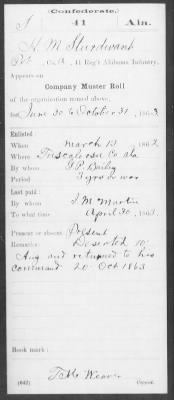 Confederate.
S 41 Ala.
H. M. Sturdivant
Pvt, Co. A, 41 Reg't Alabama Infantry.
Appears on
Company Muster Roll
of the organization named above,
for June 30 to October 31, 1863.
Enlisted:
When March 13 1862
Where Tuscaloosa Co Ala
By whom T. P. Bailey
Period 3 yrs or war
Last paid:
By whom J. M. Martin
To what time April 30, 1863.
Present or absent Present
Remarks: Deserted 10
Aug and returned to his
command 20 Oct 1863
Book mark:
Weaver
(642) Copyist.